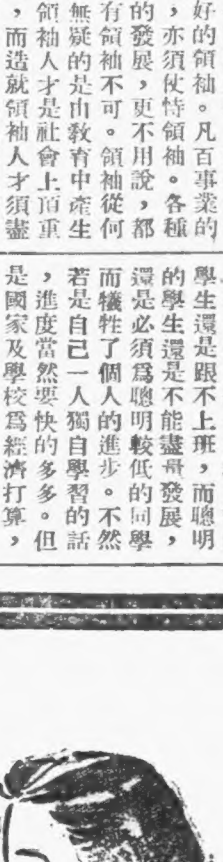 好的領袖。凡百事業的
，亦須仗恃領袖。各種
的發展，更不用說，都
有領袖不可。領袖從何
無疑的是由教育中產生
領袖人才是社會上頂重
，而造就領袖人才須盡
學生還是跟不上班，而聰明
的學生還是不能盡量發展，
還是必須爲聰明較低的同學
而犧牲了個人的進步。不然
若是自己一人獨自學習的話
，進度當然要快的多多。但
是國家及學校爲經濟打算，